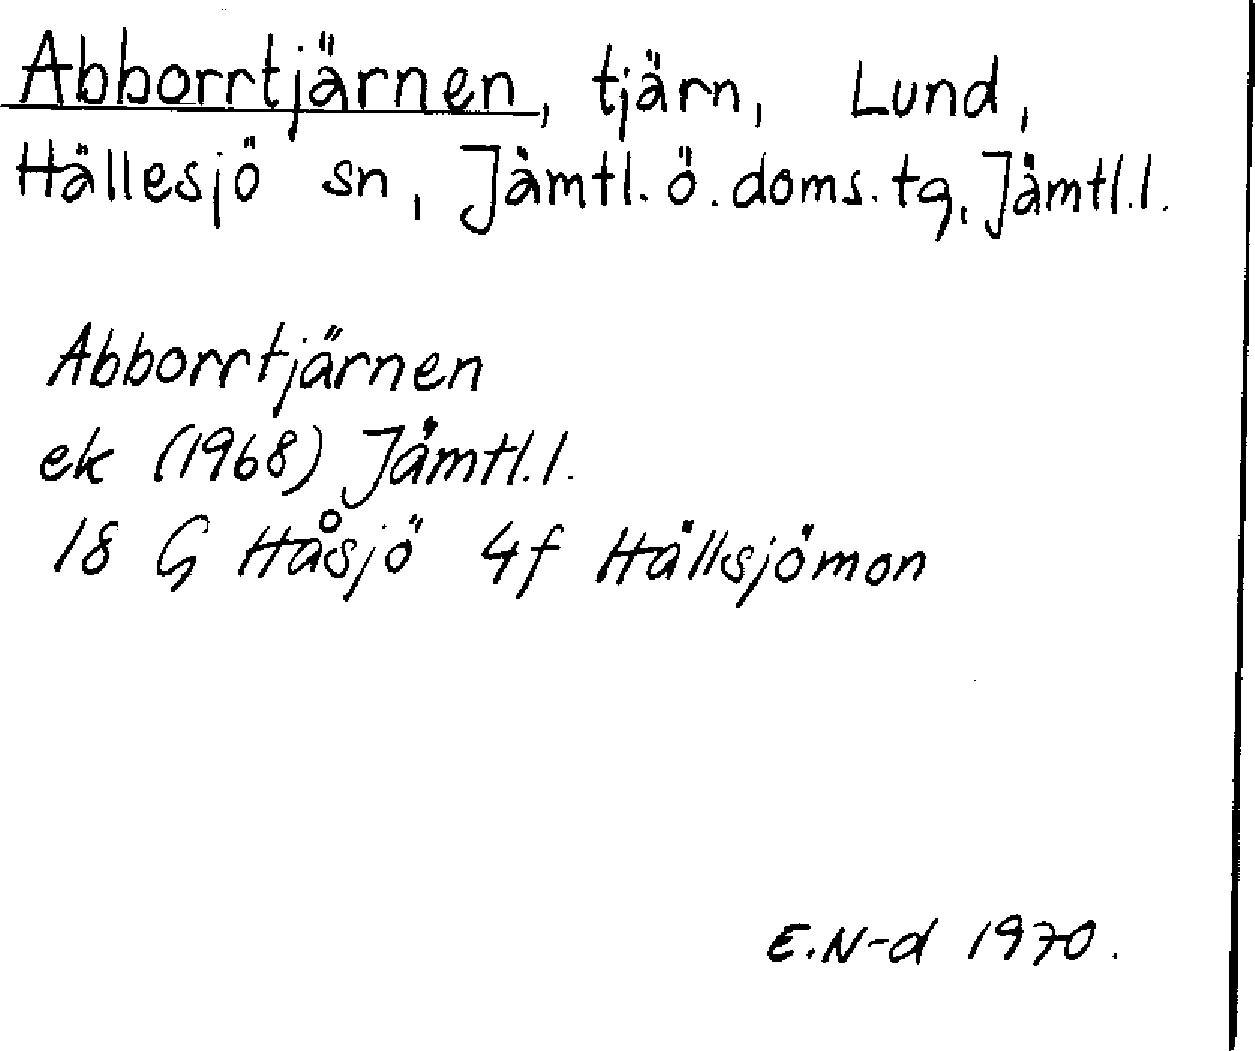 Abborrtjärnen, tjärn, Lund,
Hällesjö sn, Jämtl. ö. doms. tg, Jämtl.l.
Abborrtjärnen
ek (1968) Jämtl.l.
18 G Håsjö 4f Hällsjömon
E.N-d 1970.